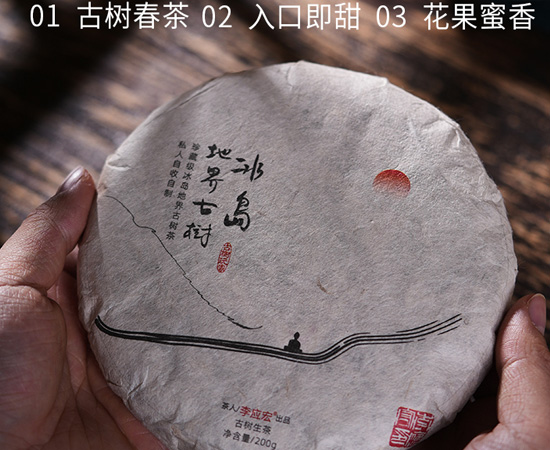 01 古树春茶 02 入口即甜 03 花果蜜香
冰岛
地界古树
珍藏级冰岛地界古树茶
私人自收自制
茶人/李应宏®出品
古树生茶
净含量/200g